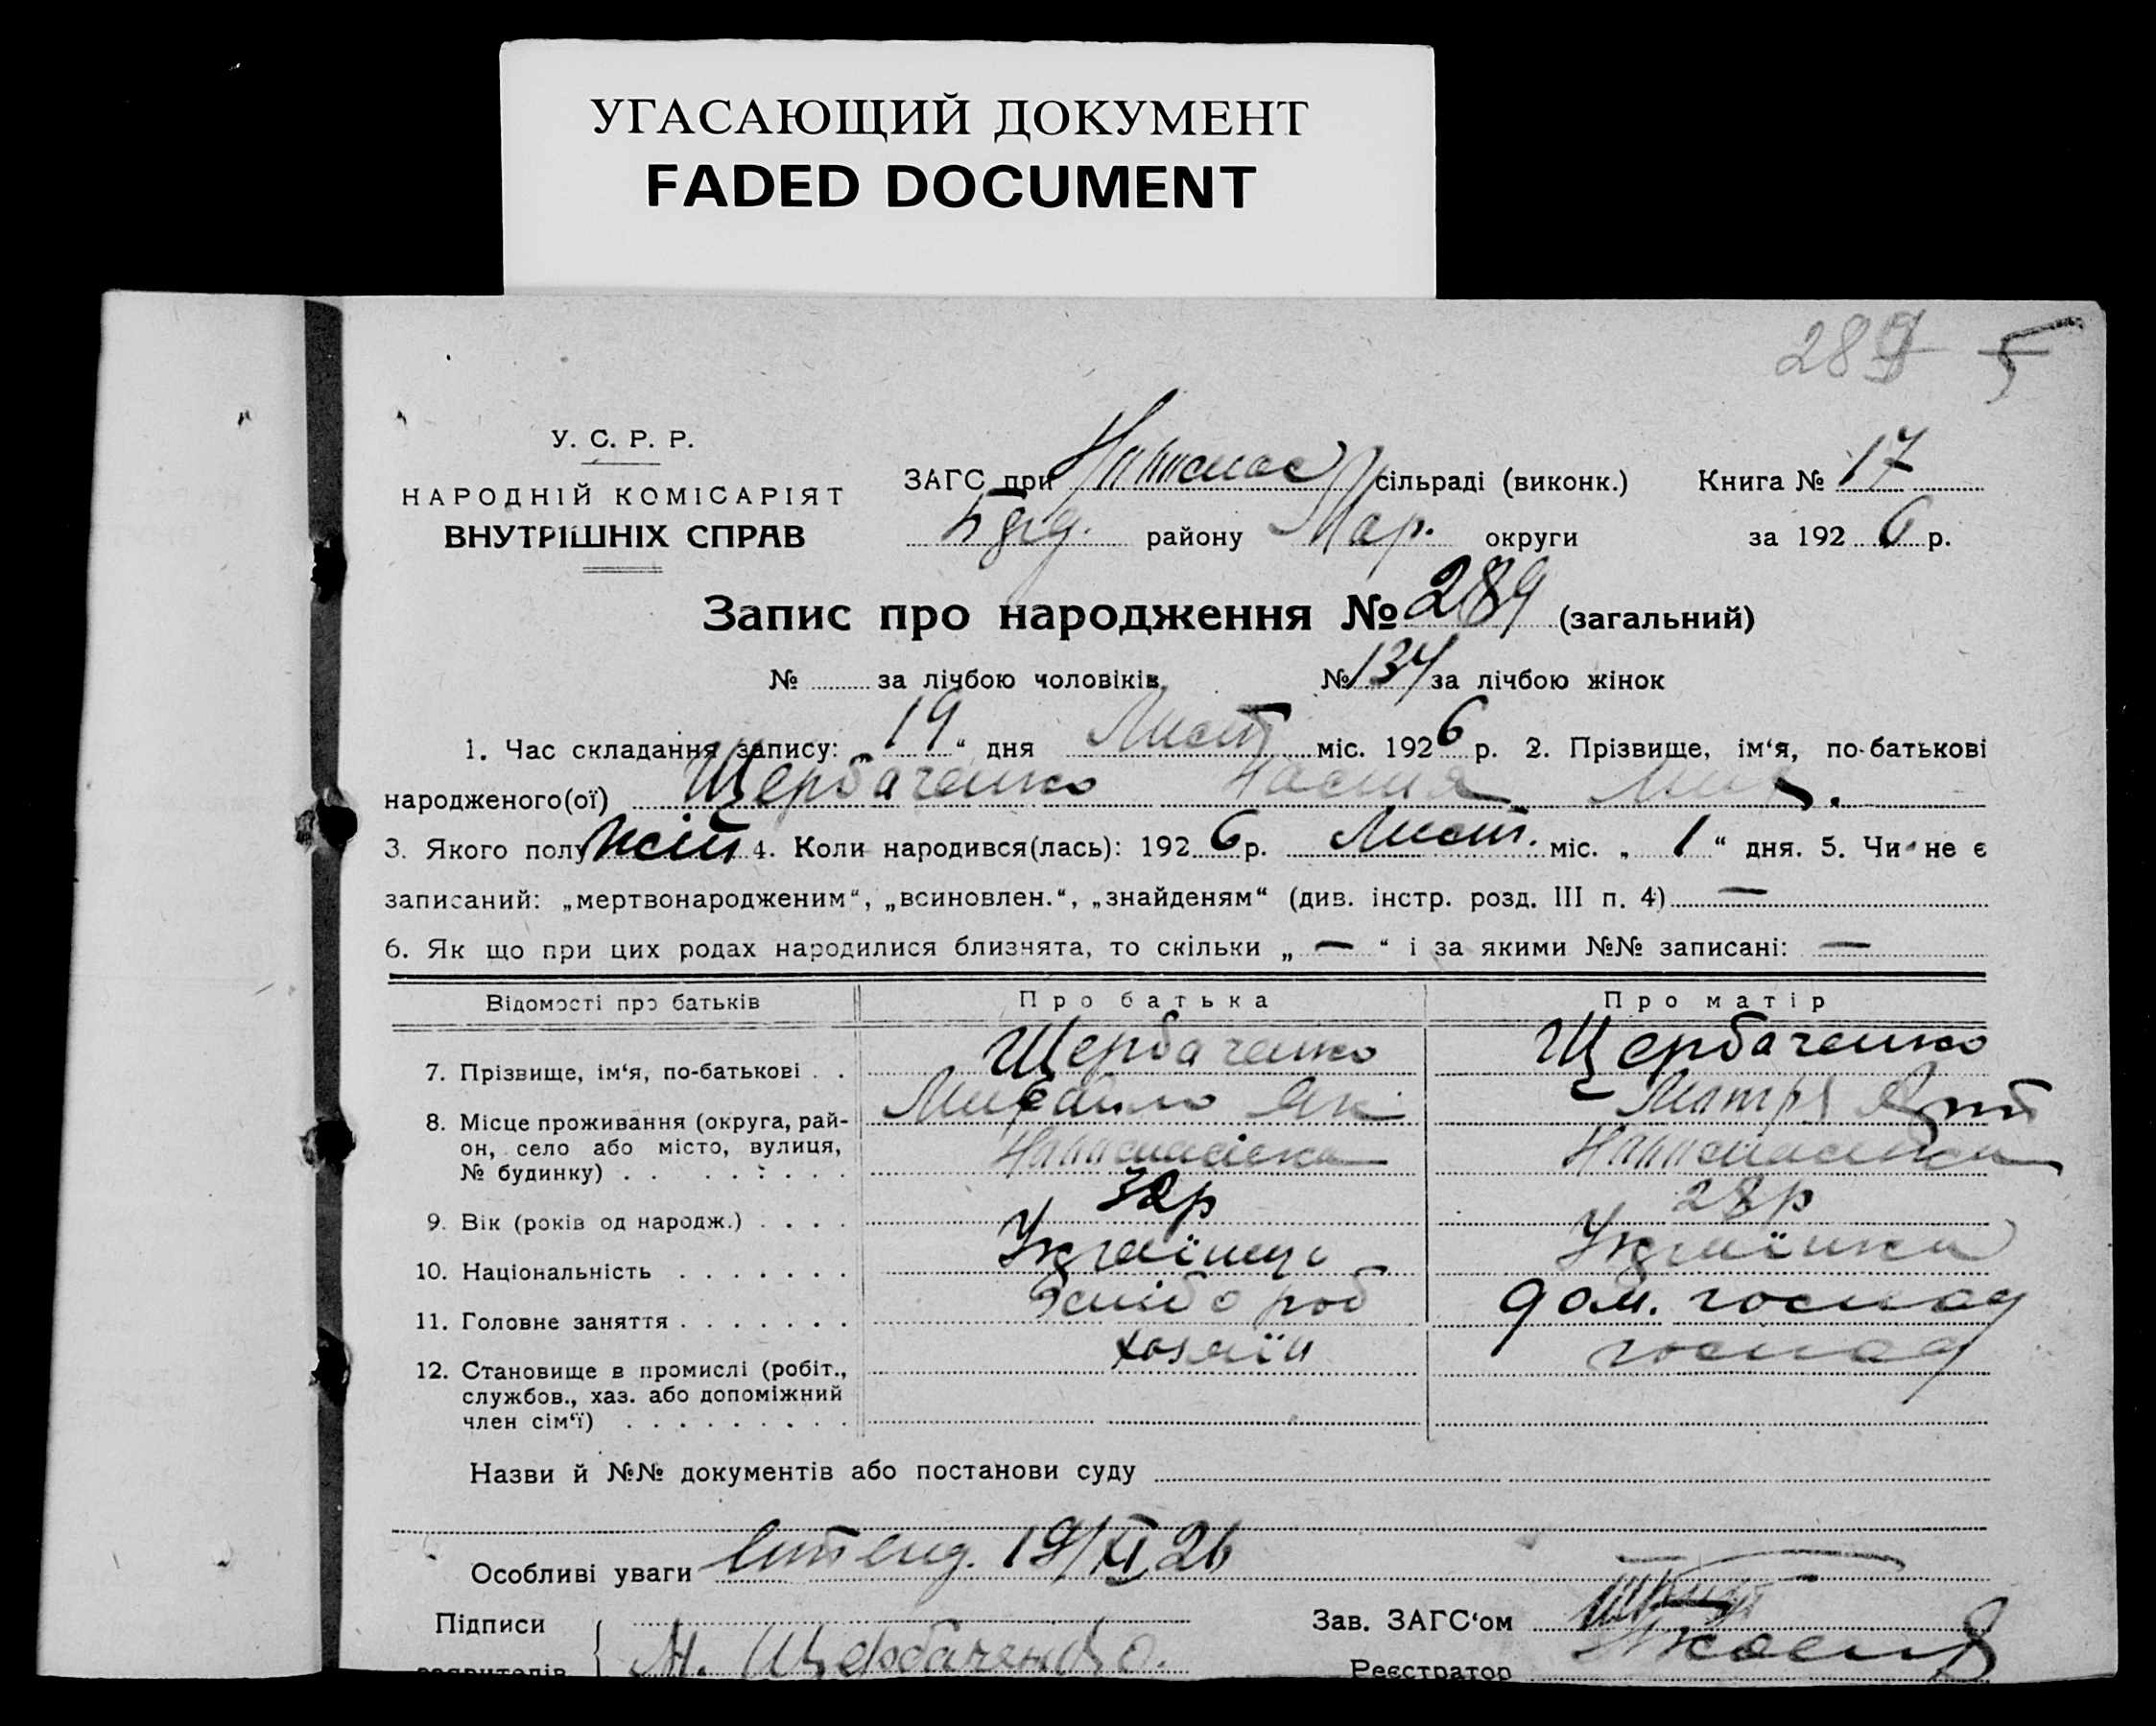 УГАСАЮЩИЙ ДОКУМЕНТ
FADED DOCUMENT
289 5
У. С. Р. Р.
НАРОДНІЙ КОМІСАРІЯТ
ВНУТРІШНІХ СПРАВ
ЗАГС при сільраді (виконк.) Книга № 17
району Мар. округи за 1926 р.
Запис про народження № 289 (загальний)
№ за лічбою чоловіків № 134 за лічбою жінок
1. Час складання запису: „19“ дня Лист міс. 1926 р. 2. Прізвище, ім‘я, по-батькові
народженого(ої) Щербаченко Настя Мих.
3. Якого полу жін 4. Коли народився(лась): 1926 р. Лист. міс. „1“ дня. 5. Чи не є
записаний: „мертвонародженим“, „всиновлен.“, „знайденям“ (див. інстр. розд. III п. 4) —
6. Як що при цих родах народилися близнята, то скільки „—“ і за якими №№ записані: —
Відомості про батьків Про батька Про матір
7. Прізвище, ім‘я, по-батькові . . Щербаченко Щербаченко
Михайло Як
8. Місце проживання (округа, рай-
он, село або місто, вулиця,
№ будинку) . . . . : . . .
9. Вік (років од народж.) . . . . 32р 28р
10. Національність . . . . . . . Українець Українка
11. Головне заняття . . . . . . . Хлібороб дом. господ
12. Становище в промислі (робіт., хазяїн господ
службов., хаз. або допоміжний
член сім‘ї) . . . . . . . . .
Назви й №№ документів або постанови суду
Особливі уваги 19/XI 26
Підписи Зав. ЗАГС‘ом
заявителів М. Щербаченко.
Реєстратор